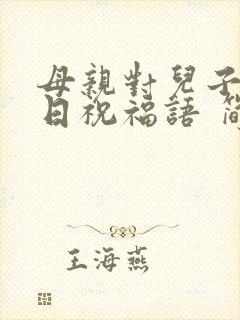 母親對兒子
日祝福語 簡
王海燕